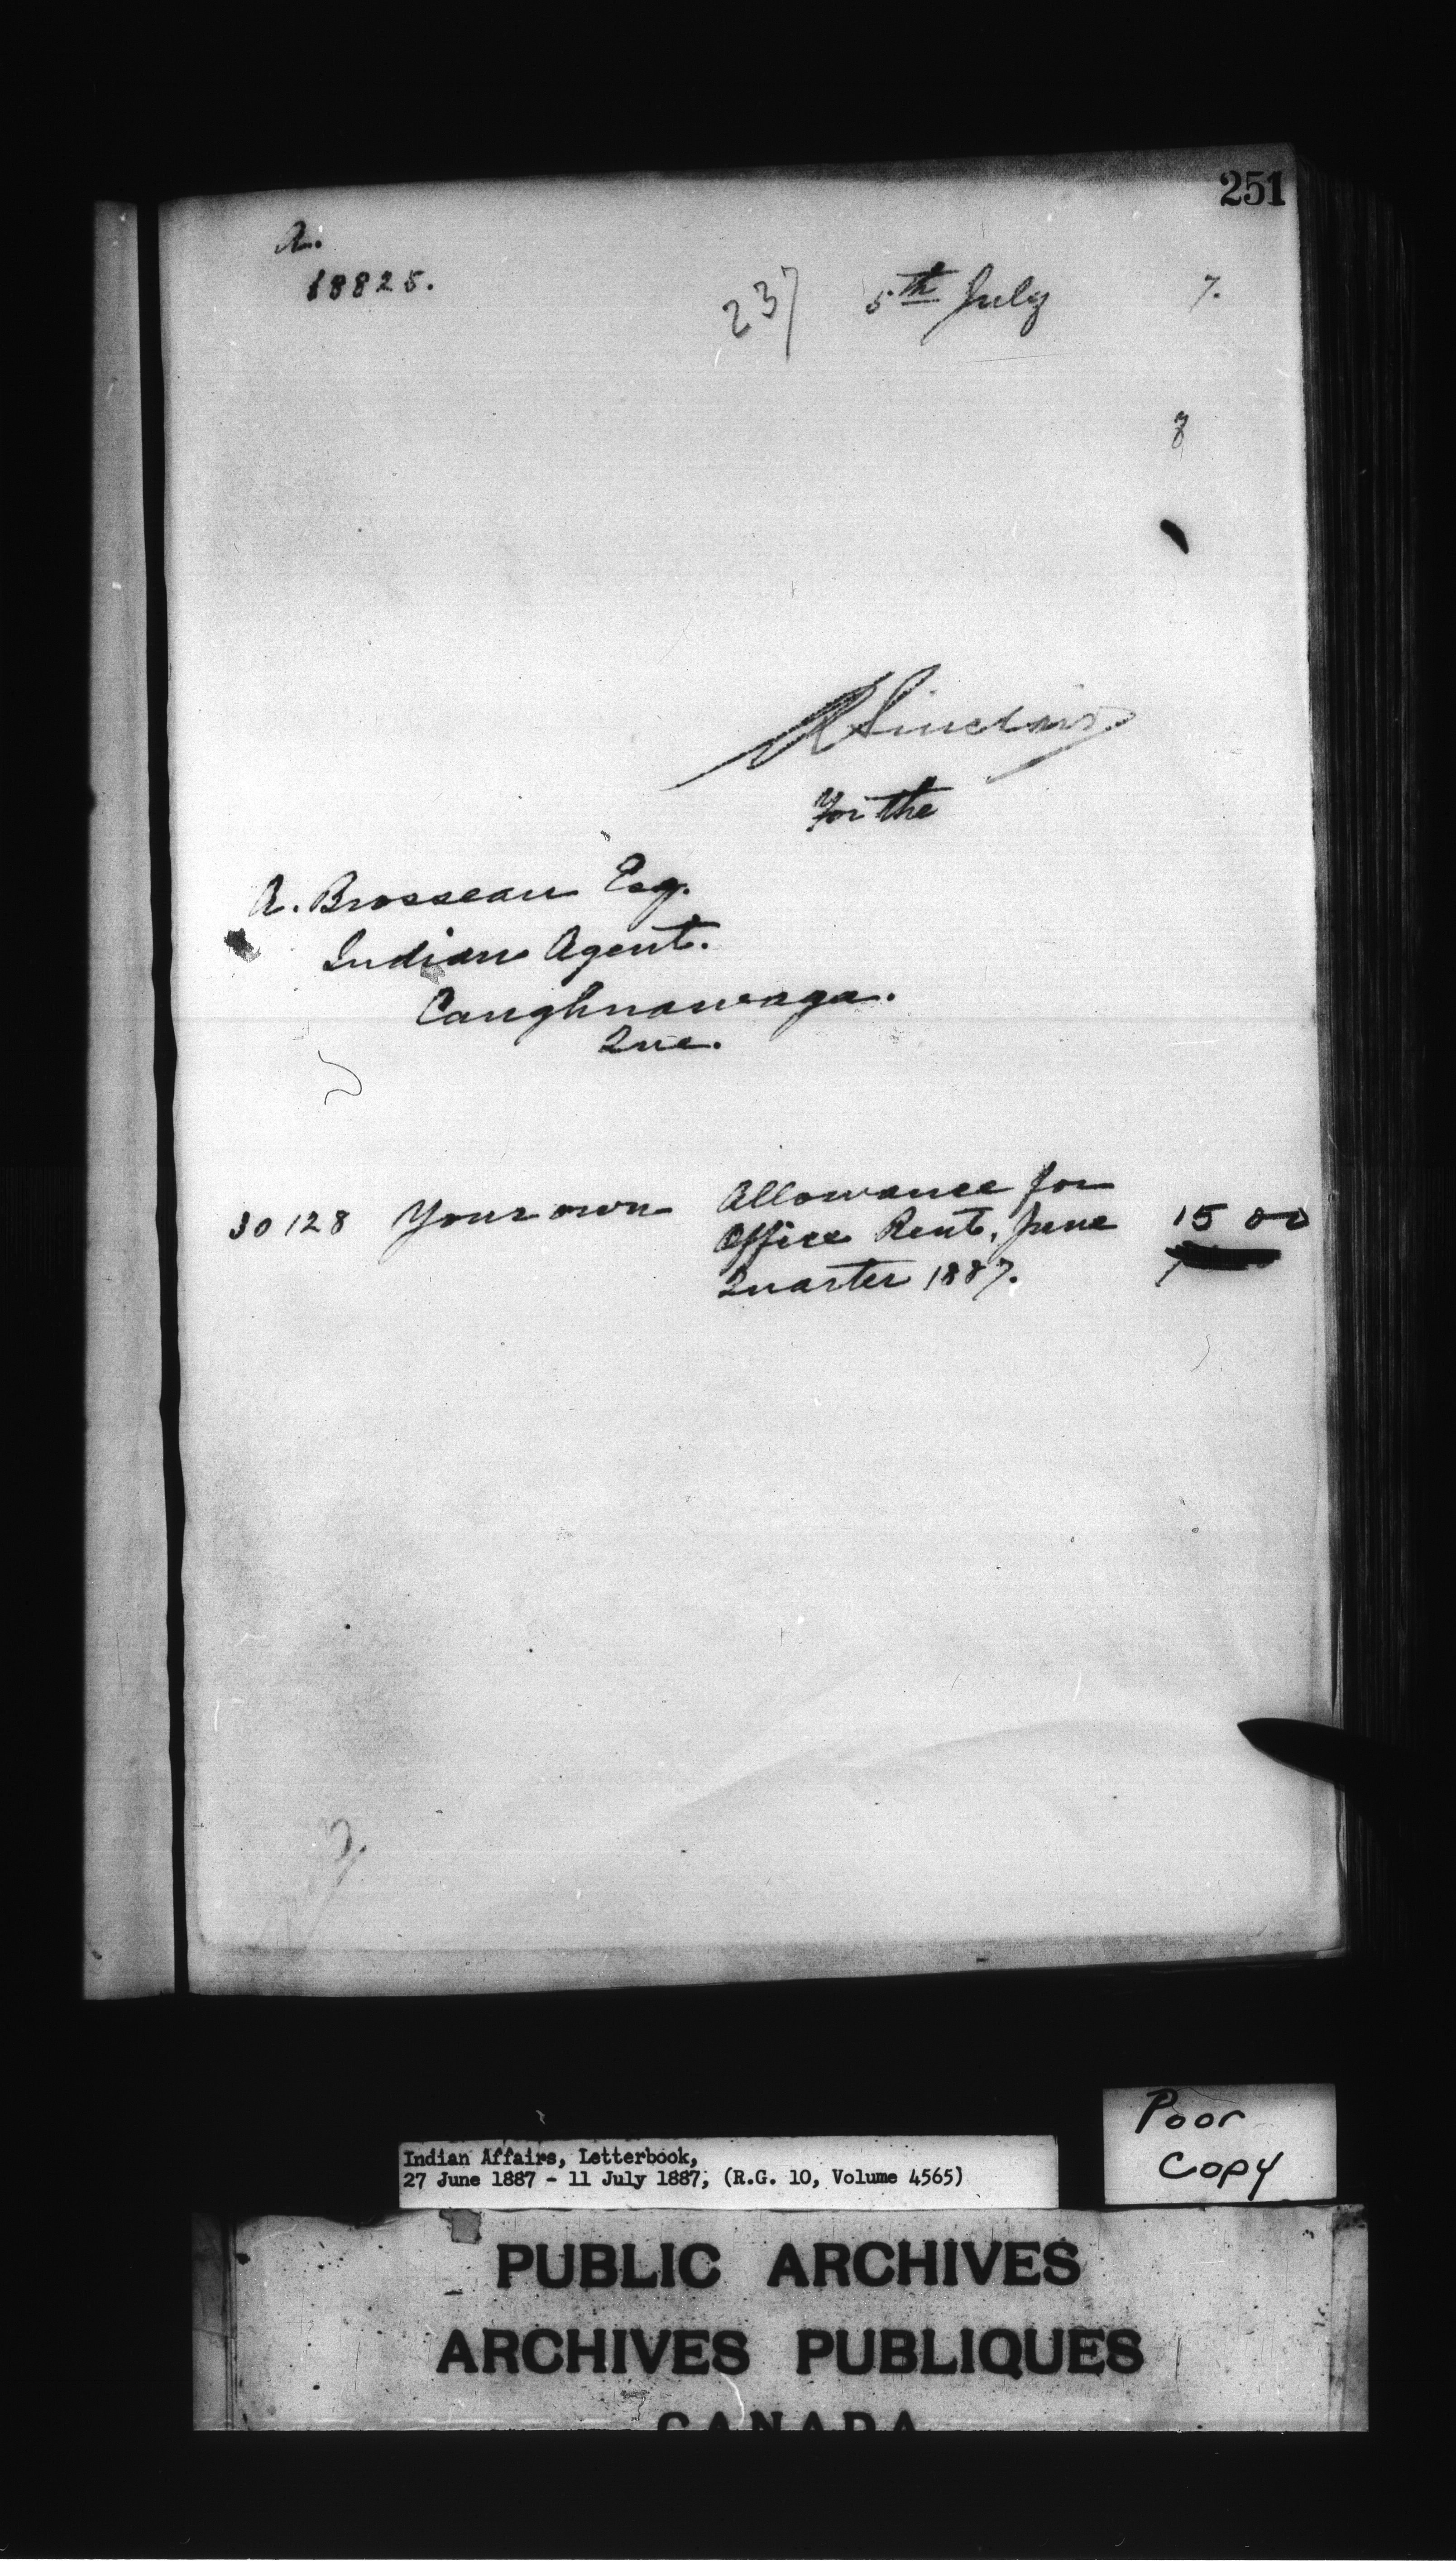 251
A.
18825.
237 5th July 7.
8
R Sinclair
For the
A. Brosseau Esq.
Indian Agent.
Caughnawaga.
Que.
30128 Your own Allowance for
Office Rent, June 15 00
Quarter 1887.
Poor
Copy
Indian Affairs, Letterbook,
27 June 1887 - 11 July 1887, (R.G. 10, Volume 4565)
PUBLIC ARCHIVES
ARCHIVES PUBLIQUES
CANADA